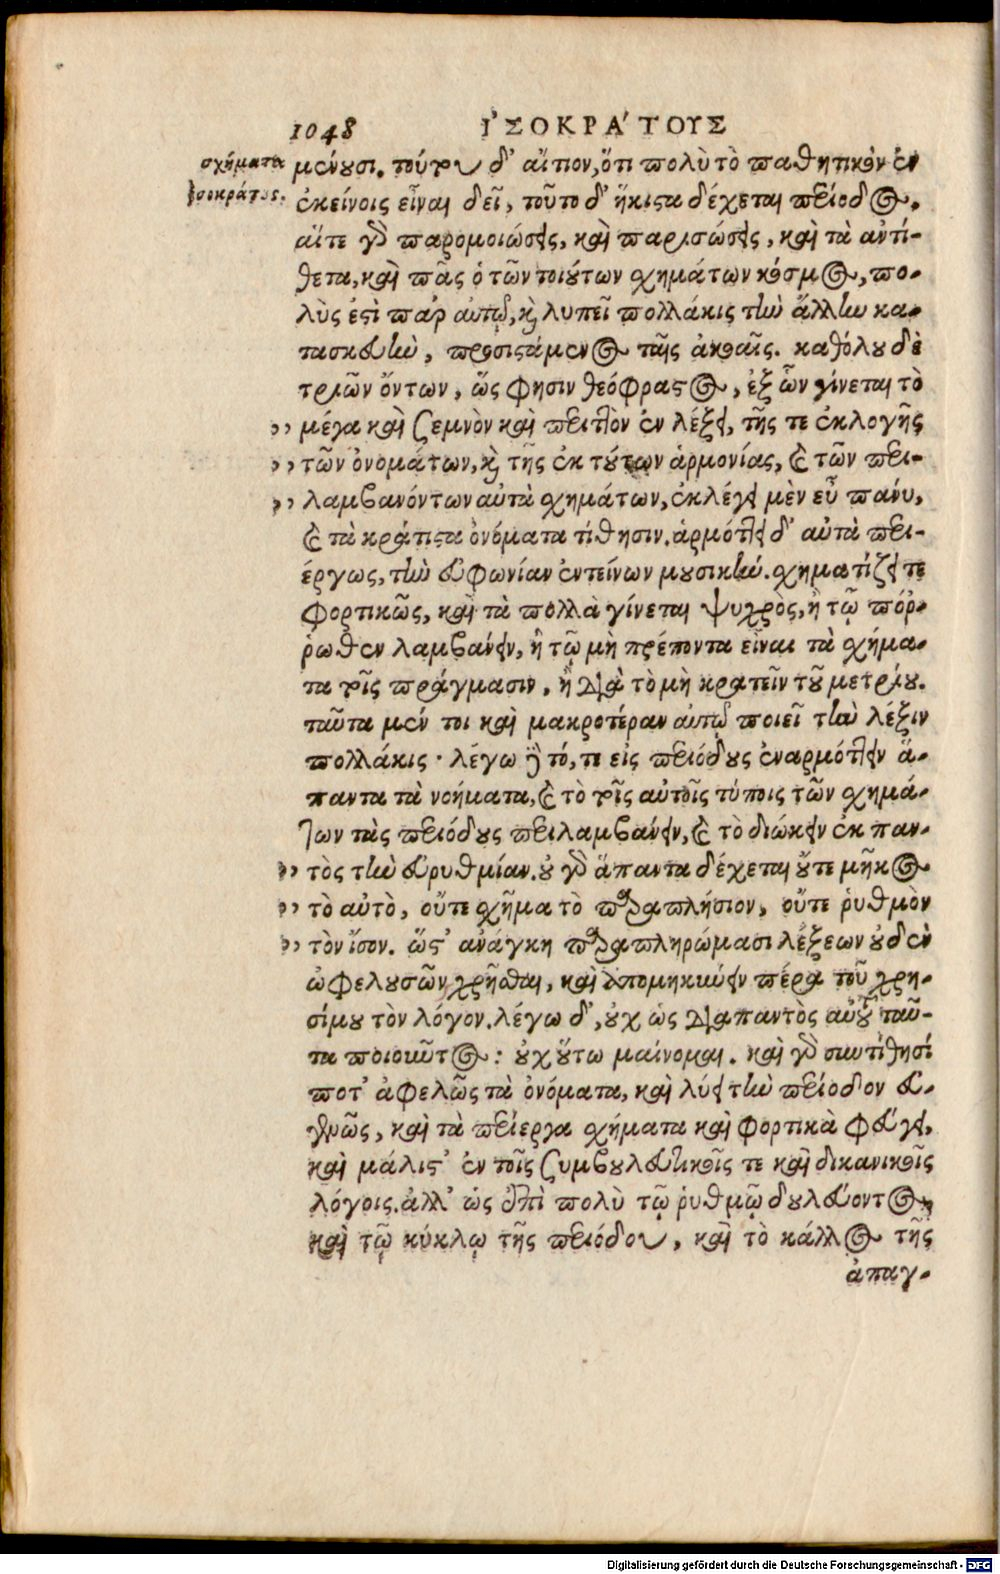 1048 ἸΣΟΚΡΆΤΟΥΣ
σχήματα
ἰσοκράτους.
μένουσι. τούτου δ' αἴτιον, ὅτι πολὺ τὸ παθητικὸν ἐν
ἐκείνοις εἶναι δεῖ, τοῦτο δ' ἥκιστα δέχεται περίοδος.
αἵτε γὰρ παρομοιώσεις, καὶ παρισώσεις, καὶ τὰ ἀντί-
θετα, καὶ πᾶς ὁ τῶν τοιούτων σχημάτων κόσμος, πο-
λὺς ἐστὶ παρ' αὐτῷ, καὶ λυπεῖ πολλάκις τὴν ἄλλην κα-
τασκευὴν, προσιστάμενος ταῖς ἀκοαῖς. καθόλου δὲ
τριῶν ὄντων, ὥς φησιν θεόφραστος, ἐξ ὧν γίνεται τὸ
μέγα καὶ σεμνὸν καὶ περιττὸν ἐν λέξει, τῆς τε ἐκλογῆς
τῶν ὀνομάτων, καὶ τῆς ἐκ τούτων ἁρμονίας, καὶ τῶν περι-
λαμβανόντων αὐτὰ σχημάτων, ἐκλέγει μὲν εὖ πάνυ,
καὶ τὰ κράτιστα ὀνόματα τίθησιν. ἁρμόττει δ' αὐτὰ περι-
έργως, τὴν εὐφωνίαν ἐντείνων μουσικήν. σχηματίζει τε
φορτικῶς, καὶ τὰ πολλὰ γίνεται ψυχρὸς, ἢ τῷ πόρ-
ρωθεν λαμβάνειν, ἢ τῷ μὴ πρέποντα εἶναι τὰ σχήμα-
τα τοῖς πράγμασιν, ἢ διὰ τὸ μὴ κρατεῖν τοῦ μετρίου.
ταῦτα μέν τοι καὶ μακροτέραν αὐτῷ ποιεῖ τὴν λέξιν
πολλάκις· λέγω δὲ τό, τε εἰς περιόδους ἐναρμόττειν ἅ-
παντα τὰ νοήματα, καὶ τὸ τοῖς αὐτοῖς τύποις τῶν σχημά-
των τὰς περιόδους περιλαμβάνειν, καὶ τὸ διώκειν ἐκ παν-
τὸς τὴν εὐρυθμίαν. οὐ γὰρ ἅπαντα δέχεται οὔτε μῆκος
τὸ αὐτὸ, οὔτε σχῆμα τὸ παραπλήσιον, οὔτε ῥυθμὸν
τὸν ἴσον. ὥστ' ἀνάγκη παραπληρώμασι λέξεων οὐδὲν
ὠφελουσῶν χρῆσθαι, καὶ ἀπομηκύνειν πέρα τοῦ χρη-
σίμου τὸν λόγον. λέγω δ', οὐχ ὡς διαπαντὸς αὐτοῦ ταῦ-
τα ποιοῦντος: οὐχ οὕτω μαίνομαι. καὶ γὰρ συντίθησί
ποτ' ἀφελῶς τὰ ὀνόματα, καὶ λύει τὴν περίοδον εὐ-
γενῶς, καὶ τὰ περίεργα σχήματα καὶ φορτικὰ φεύγει,
καὶ μάλιστ' ἐν τοῖς συμβουλευτικοῖς τε καὶ δικανικοῖς
λόγοις. ἀλλ' ὡς ἐπὶ πολὺ τῷ ῥυθμῷ δουλεύοντος,
καὶ τῷ κύκλῳ τῆς περιόδου, καὶ τὸ κάλλος τῆς
ἀπαγ-
Digitalisierung gefördert durch die Deutsche Forschungsgemeinschaft - DFG